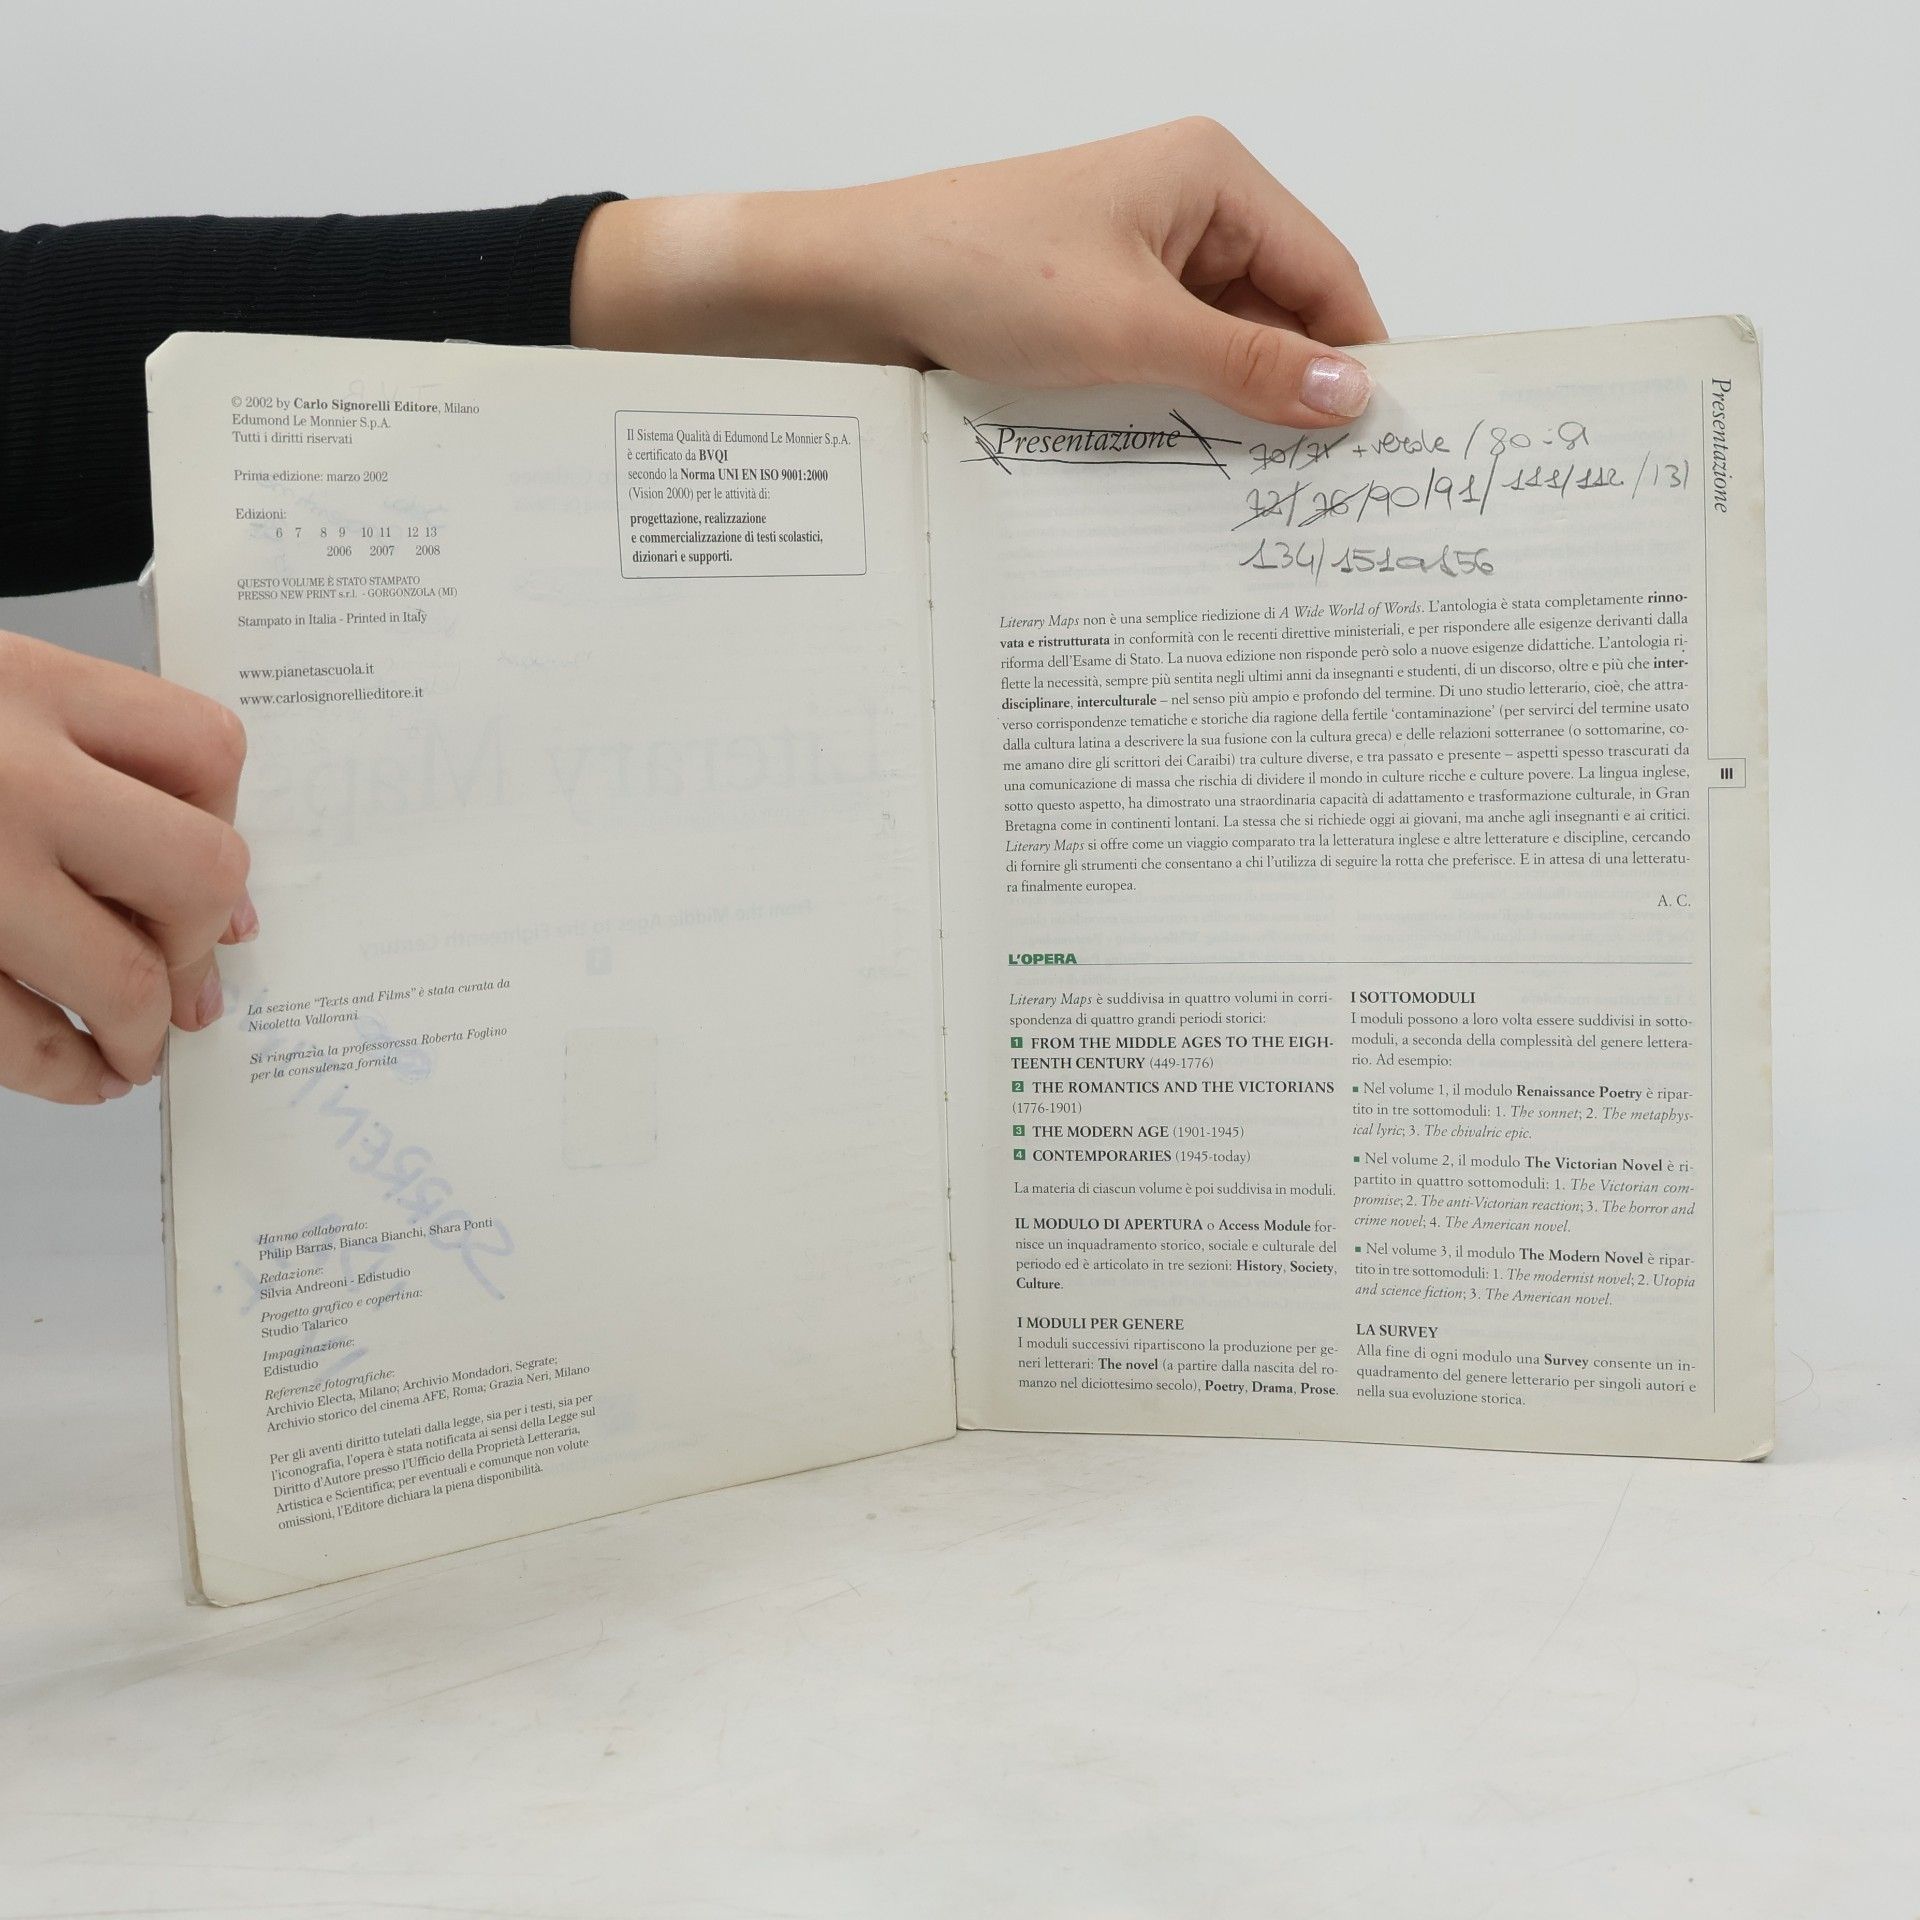 © 2002 by Carlo Signorelli Editore, Milano
Edumond Le Monnier S.p.A.
Tutti i diritti riservati
Prima edizione: marzo 2002
Edizioni:
6 7 8 9 10 11 12 13
2006 2007 2008
QUESTO VOLUME È STATO STAMPATO
PRESSO NEW PRINT s.r.l. - GORGONZOLA (MI)
Stampato in Italia - Printed in Italy
www.pianetascuola.it
www.carlosignorellieditore.it
Il Sistema Qualità di Edumond Le Monnier S.p.A.
è certificato da BVQI
secondo la Norma UNI EN ISO 9001:2000
(Vision 2000) per le attività di:
progettazione, realizzazione
e commercializzazione di testi scolastici,
dizionari e supporti.
La sezione "Texts and Films" è stata curata da
Nicoletta Vallorani
Si ringrazia la professoressa Roberta Foglino
per la consulenza fornita
Hanno collaborato:
Philip Barras, Bianca Bianchi, Shara Ponti
Redazione:
Silvia Andreoni - Edistudio
Progetto grafico e copertina:
Studio Talarico
Impaginazione:
Edistudio
Referenze fotografiche:
Archivio Electa, Milano; Archivio Mondadori, Segrate;
Archivio storico del cinema AFE, Roma; Grazia Neri, Milano
Per gli aventi diritto tutelati dalla legge, sia per i testi, sia per
l'iconografia, l'opera è stata notificata ai sensi della Legge sul
Diritto d'Autore presso l'Ufficio della Proprietà Letteraria,
Artistica e Scientifica; per eventuali e comunque non volute
omissioni, l'Editore dichiara la piena disponibilità.
Presentazione
70/71 + verde / 80
72/76/90/91/111/112/131
134/151a156
Literary Maps non è una semplice riedizione di A Wide World of Words. L'antologia è stata completamente rinno-
vata e ristrutturata in conformità con le recenti direttive ministeriali, e per rispondere alle esigenze derivanti dalla
riforma dell'Esame di Stato. La nuova edizione non risponde però solo a nuove esigenze didattiche. L'antologia ri-
flette la necessità, sempre più sentita negli ultimi anni da insegnanti e studenti, di un discorso, oltre e più che inter-
disciplinare, interculturale – nel senso più ampio e profondo del termine. Di uno studio letterario, cioè, che attra-
verso corrispondenze tematiche e storiche dia ragione della fertile 'contaminazione' (per servirci del termine usato
dalla cultura latina a descrivere la sua fusione con la cultura greca) e delle relazioni sotterranee (o sottomarine, co-
me amano dire gli scrittori dei Caraibi) tra culture diverse, e tra passato e presente – aspetti spesso trascurati da
una comunicazione di massa che rischia di dividere il mondo in culture ricche e culture povere. La lingua inglese,
sotto questo aspetto, ha dimostrato una straordinaria capacità di adattamento e trasformazione culturale, in Gran
Bretagna come in continenti lontani. La stessa che si richiede oggi ai giovani, ma anche agli insegnanti e ai critici.
Literary Maps si offre come un viaggio comparato tra la letteratura inglese e altre letterature e discipline, cercando
di fornire gli strumenti che consentano a chi l'utilizza di seguire la rotta che preferisce. E in attesa di una letteratu-
ra finalmente europea.
A. C.
L'OPERA
Literary Maps è suddivisa in quattro volumi in corri-
spondenza di quattro grandi periodi storici:
1 FROM THE MIDDLE AGES TO THE EIGH-
TEENTH CENTURY (449-1776)
2 THE ROMANTICS AND THE VICTORIANS
(1776-1901)
3 THE MODERN AGE (1901-1945)
4 CONTEMPORARIES (1945-today)
La materia di ciascun volume è poi suddivisa in moduli.
IL MODULO DI APERTURA o Access Module for-
nisce un inquadramento storico, sociale e culturale del
periodo ed è articolato in tre sezioni: History, Society,
Culture.
I MODULI PER GENERE
I moduli successivi ripartiscono la produzione per ge-
neri letterari: The novel (a partire dalla nascita del ro-
manzo nel diciottesimo secolo), Poetry, Drama, Prose.
I SOTTOMODULI
I moduli possono a loro volta essere suddivisi in sotto-
moduli, a seconda della complessità del genere lettera-
rio. Ad esempio:
▪ Nel volume 1, il modulo Renaissance Poetry è ripar-
tito in tre sottomoduli: 1. The sonnet; 2. The metaphys-
ical lyric; 3. The chivalric epic.
▪ Nel volume 2, il modulo The Victorian Novel è ri-
partito in quattro sottomoduli: 1. The Victorian com-
promise; 2. The anti-Victorian reaction; 3. The horror and
crime novel; 4. The American novel.
▪ Nel volume 3, il modulo The Modern Novel è ripar-
tito in tre sottomoduli: 1. The modernist novel; 2. Utopia
and science fiction; 3. The American novel.
LA SURVEY
Alla fine di ogni modulo una Survey consente un in-
quadramento del genere letterario per singoli autori e
nella sua evoluzione storica.
Presentazione
III